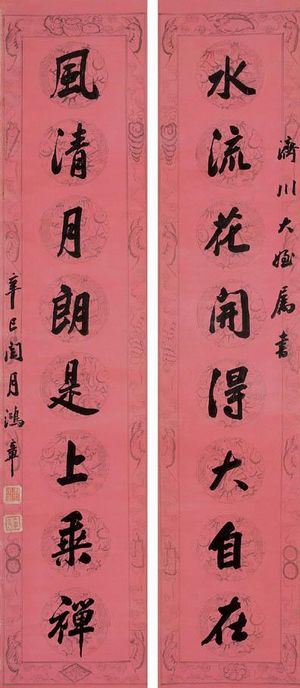 濟川大姪屬書
水流花開得大自在
風清月朗是上乘禪
辛巳閏月鴻章